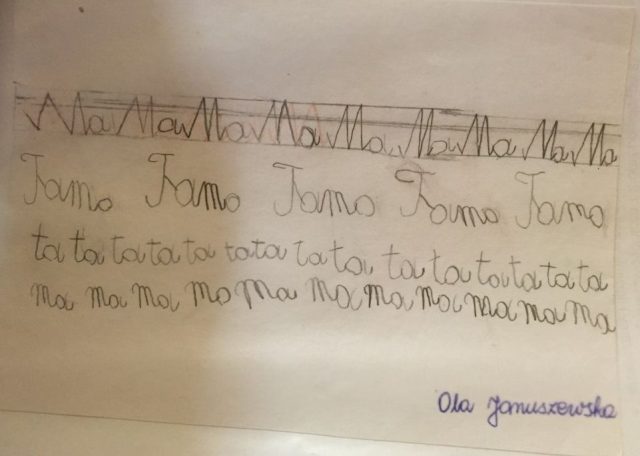 Ma Ma Ma Ma Ma Ma Ma Ma Ma
Tamo Tamo Tamo Tamo Tamo
ta ta ta ta ta ta ta ta ta ta ta ta ta ta ta
ma ma ma mo ma ma ma ma ma ma ma
Ola Januszewska